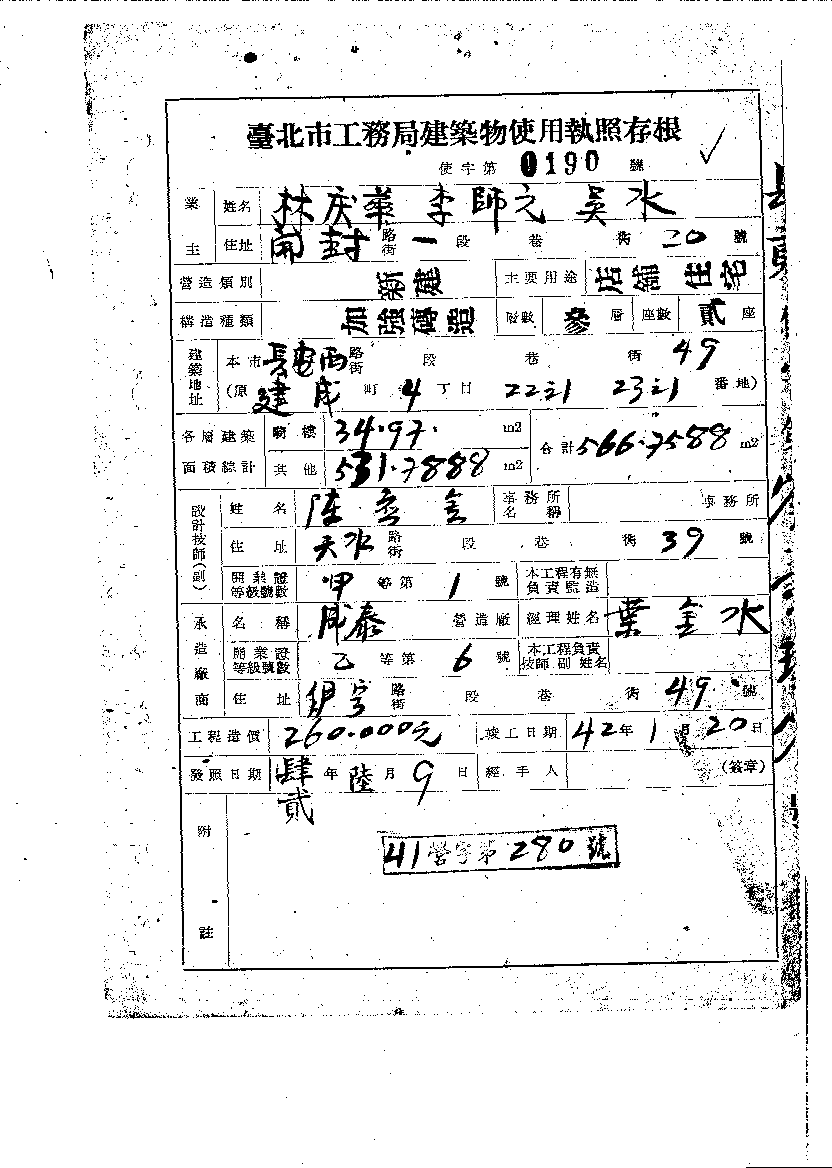 臺北市工務局建築物使用執照存根
使字第 0190 號
業主 姓名 林庆華 李師元 吳水
住址 開封 路街 一 段 巷 街 20 號
營造類別 新建 主要用途 店舖 住宅
構造種類 加強磚造 層數 參 層 座數 貳 座
建築地址 本市 長安西 路街 段 巷 街 49
(原 建成 町 4 丁目 22之1 23之1 番地)
各層建築面積綜計 騎樓 34.97. m2 合計 566.7588 m2
其他 531.7888 m2
設計技師(副) 姓名 陳 金 事務所名稱 事務所
住址 天水 路街 段 巷 街 39 號
開業證等級號數 甲 等第 1 號 本工程有無負責監造
承造廠商 名稱 成泰 營造廠 經理姓名 葉金水
開業證等級號數 乙 等第 6 號 本工程負責技師.副 姓名
住址 路街 段 巷 街 49 號
工程造價 260.000元 竣工日期 42年 1 月 20日
發照日期 肆貳 年 陸 月 9 日 經手人 (簽章)
附註
41營字第280號